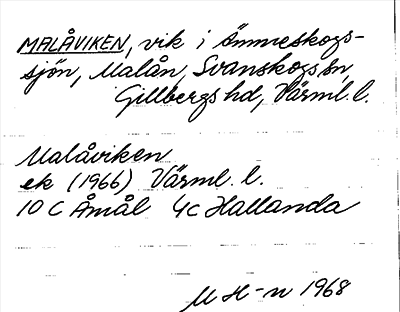 MALÅVIKEN, vik i Ömmeskogs-
sjön, Malån, Svanskogs sn,
Gillbergs hd, Värml. l.
Malåviken
ek (1966) Värml. l.
10 C Åmål 4c Hallanda
M H-n 1968